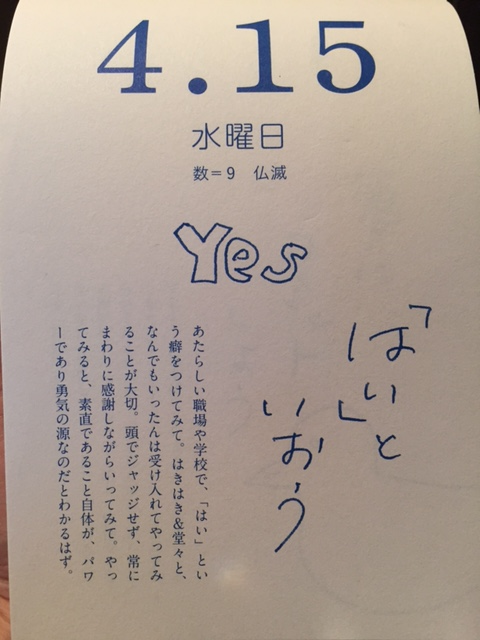 4.15
水曜日
数=9 仏滅
Yes
「はい」と
いおう
あたらしい職場や学校で、「はい」とい
う癖をつけてみて。はきはき&堂々と、
なんでもいったんは受け入れてやってみ
ることが大切。頭でジャッジせず、常に
まわりに感謝しながらいってみて。やっ
てみると、素直であること自体が、パワ
ーであり勇気の源なのだとわかるはず。